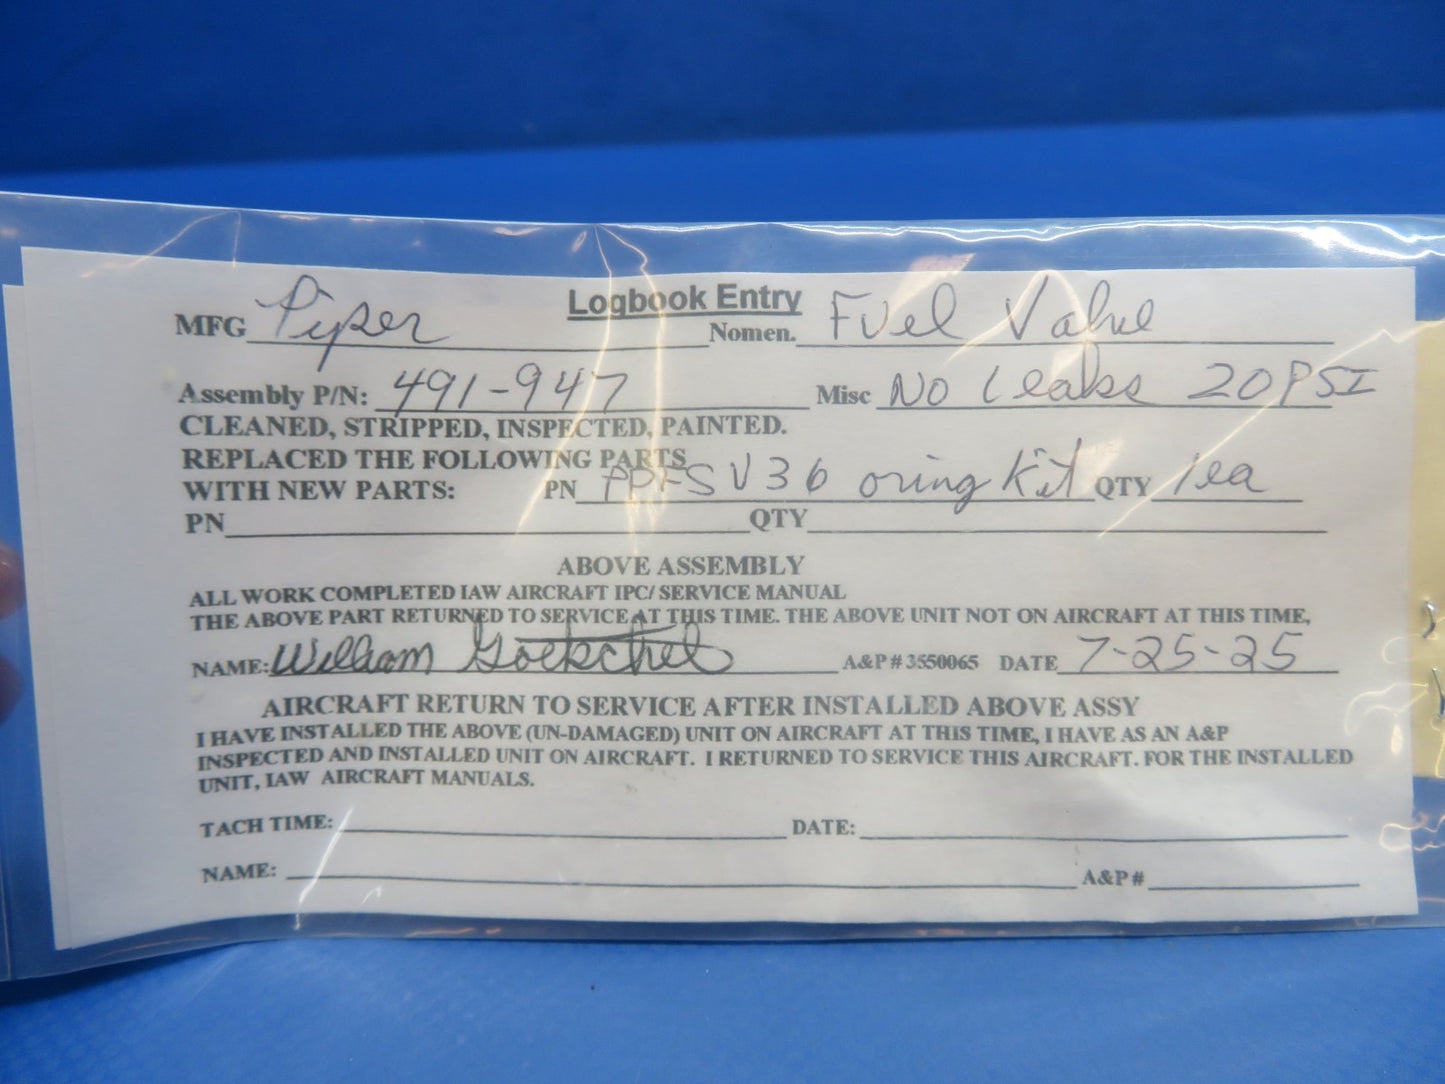 Logbook Entry
MFG Piper Nomen. Fuel Valve
Assembly P/N: 491-947 Misc No Leaks 20PSI
CLEANED, STRIPPED, INSPECTED, PAINTED.
REPLACED THE FOLLOWING PARTS
WITH NEW PARTS: PN PPFSV36 oring Kit QTY 1ea
PN QTY
ABOVE ASSEMBLY
ALL WORK COMPLETED IAW AIRCRAFT IPC/ SERVICE MANUAL
THE ABOVE PART RETURNED TO SERVICE AT THIS TIME. THE ABOVE UNIT NOT ON AIRCRAFT AT THIS TIME,
NAME: William Goetschel A&P # 3550065 DATE 7-25-25
AIRCRAFT RETURN TO SERVICE AFTER INSTALLED ABOVE ASSY
I HAVE INSTALLED THE ABOVE (UN-DAMAGED) UNIT ON AIRCRAFT AT THIS TIME, I HAVE AS AN A&P
INSPECTED AND INSTALLED UNIT ON AIRCRAFT. I RETURNED TO SERVICE THIS AIRCRAFT. FOR THE INSTALLED
UNIT, IAW AIRCRAFT MANUALS.
TACH TIME: DATE:
NAME: A&P #